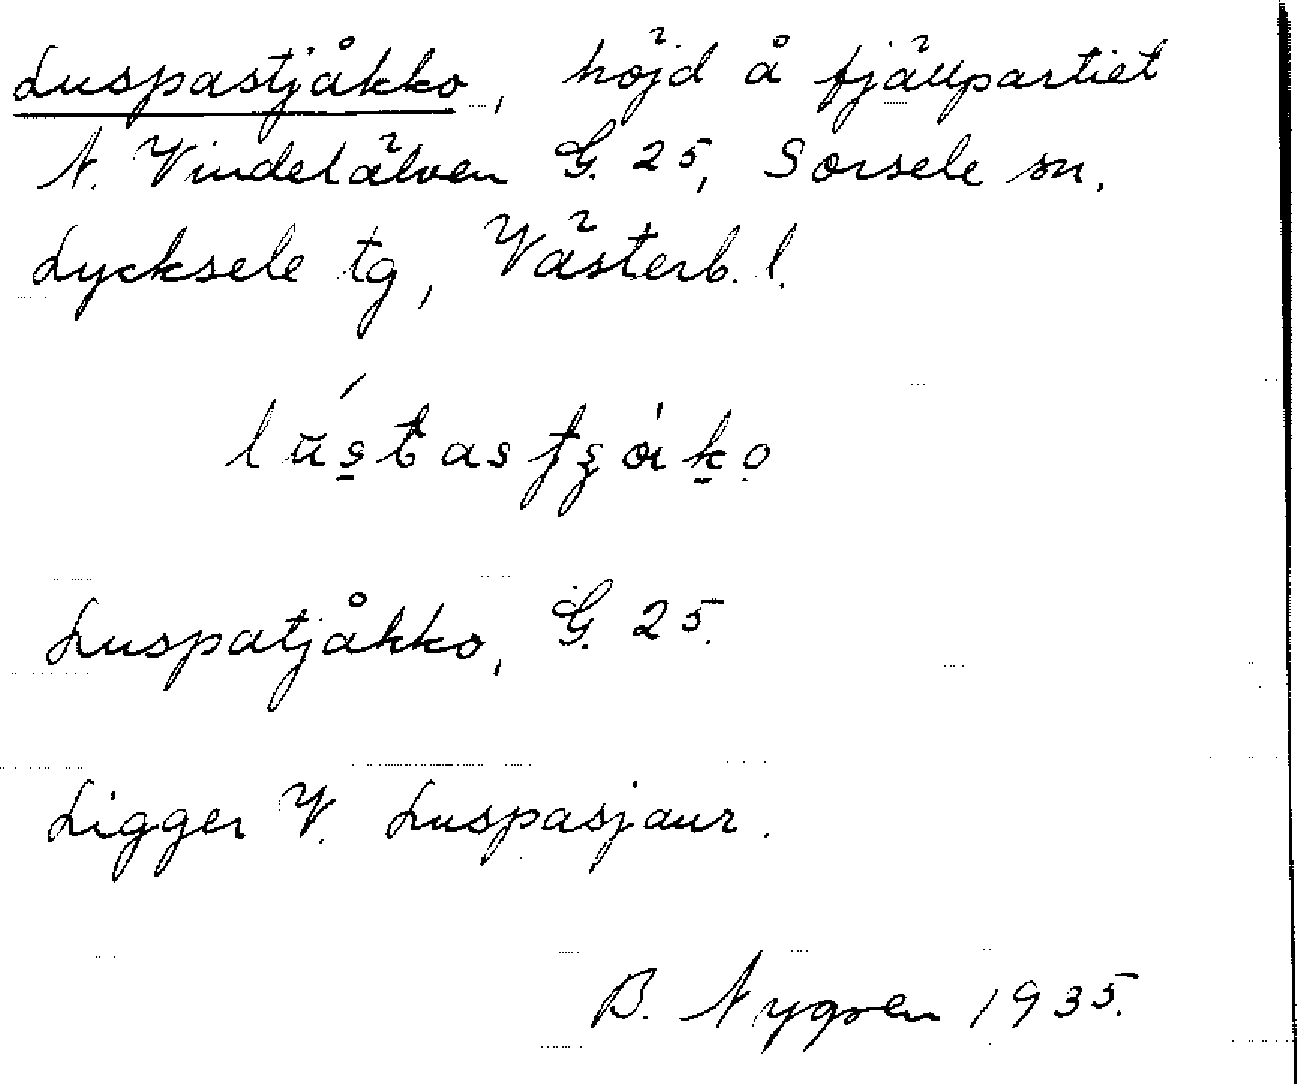 Luspastjåkko, höjd å fjällpartiet
N. Vindelälven G. 25, Sorsele sn,
Lycksele tg, Västerb. l.
Luspatjåkko, G. 25.
Ligger V. Luspasjaur.
B. Nygren 1935.